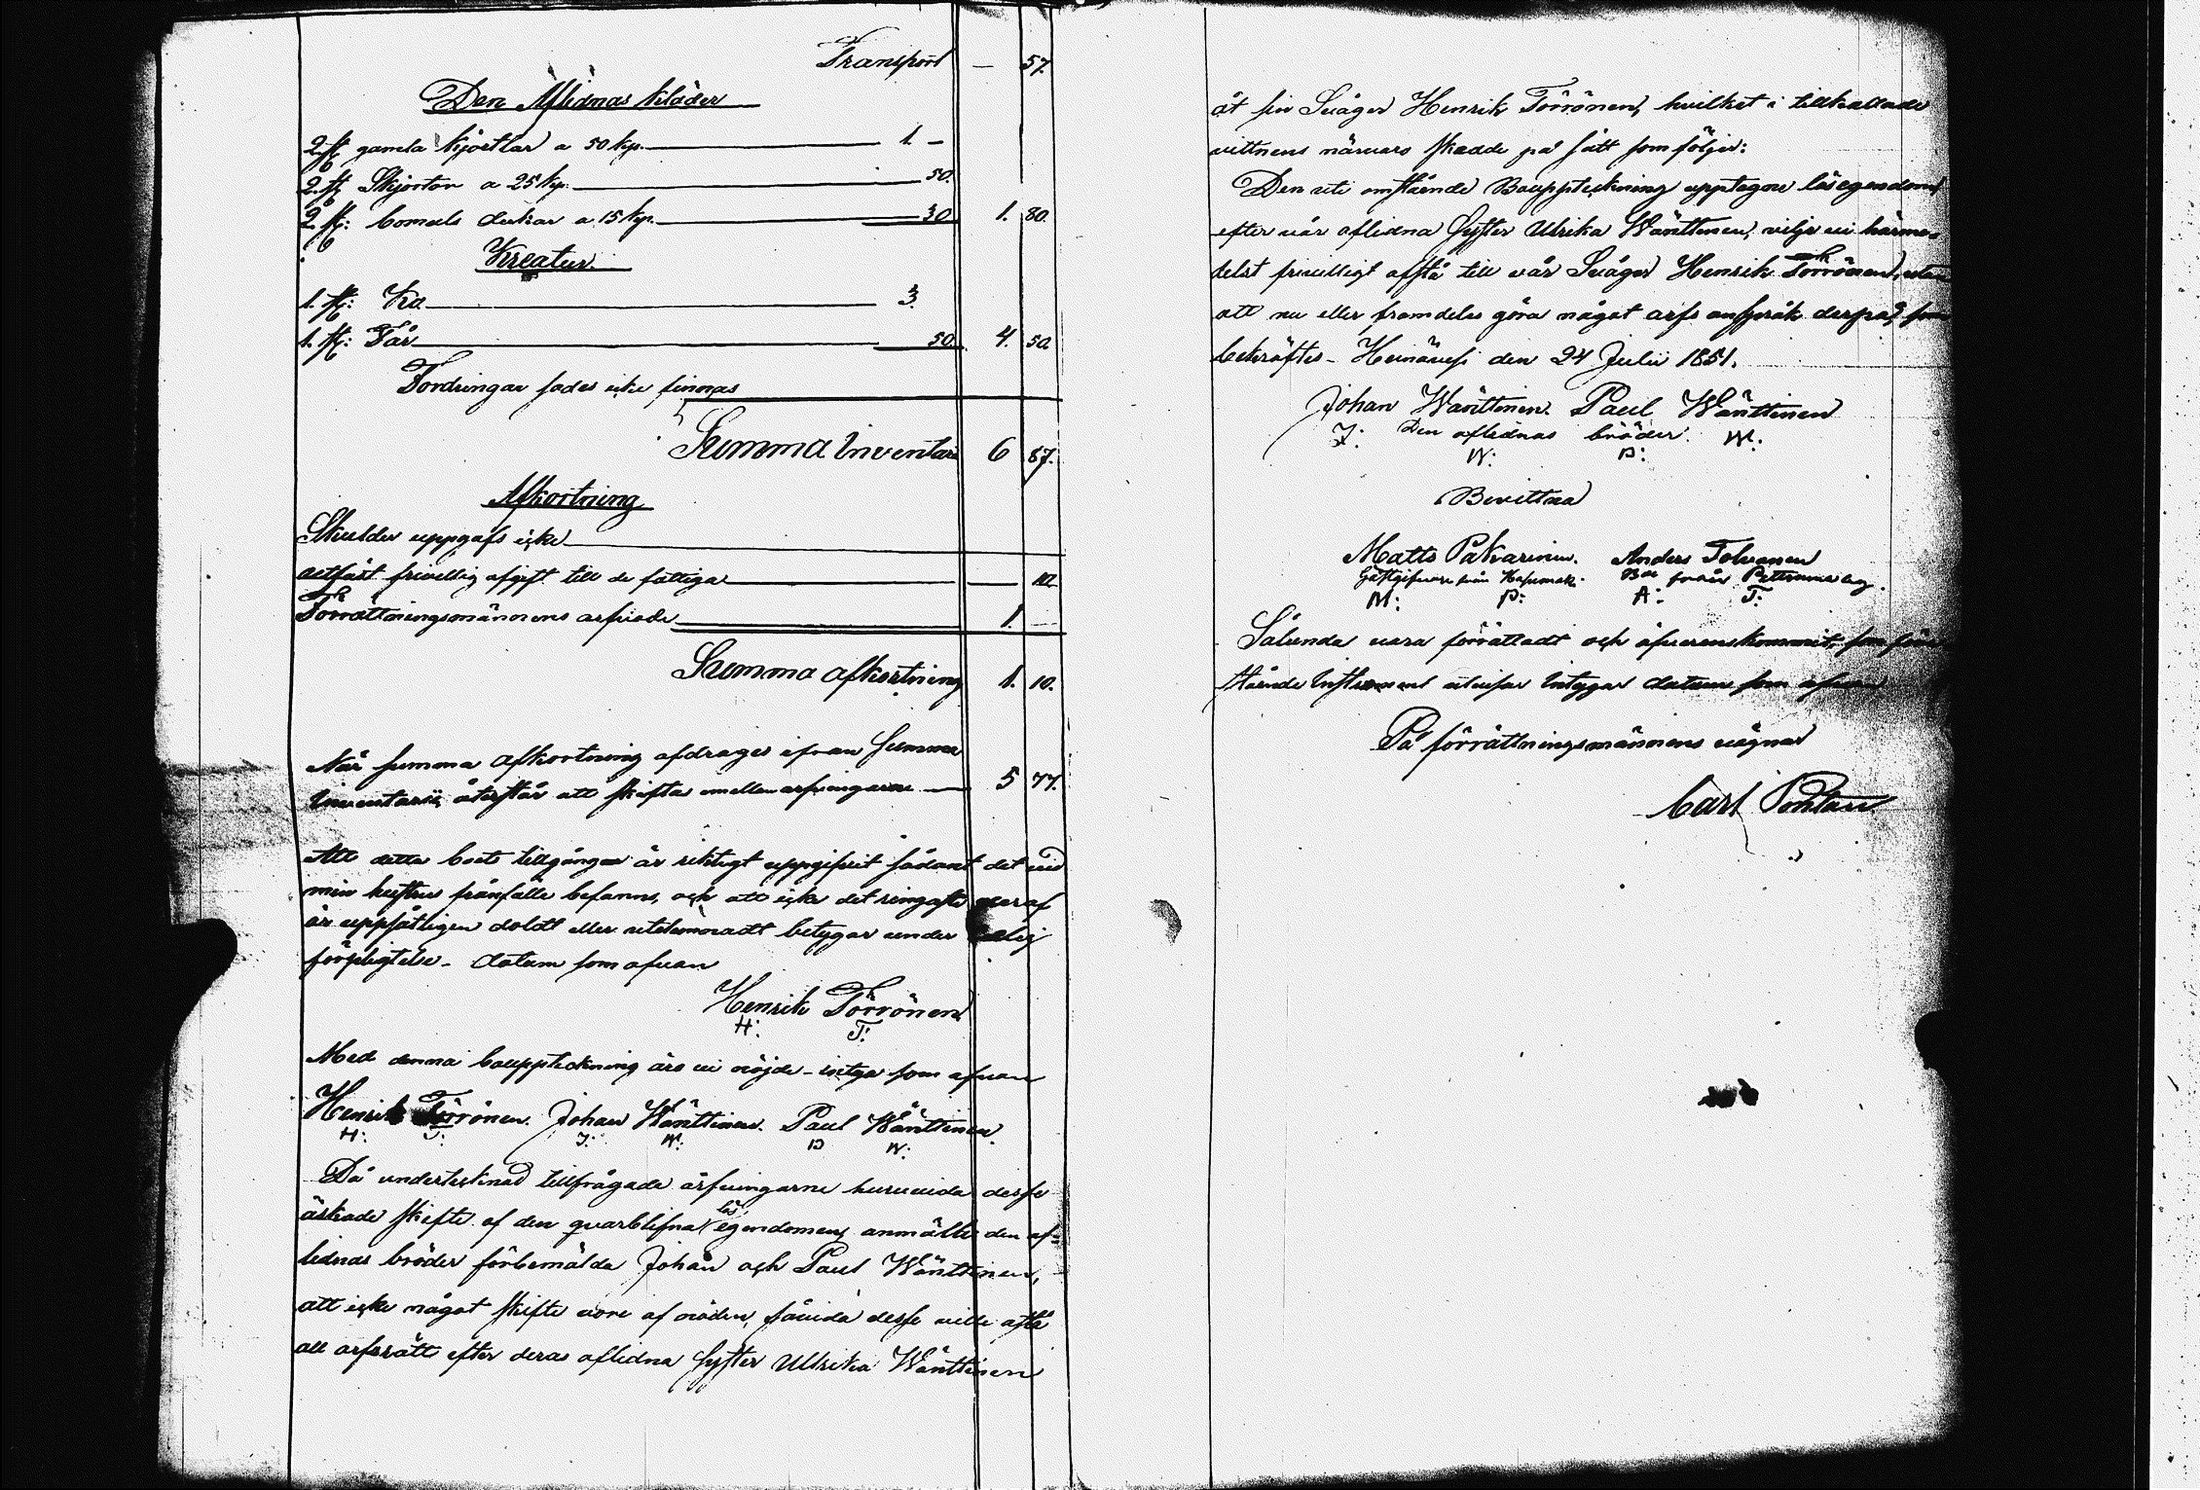 Transport — 57.
Den Aflidnas Kläder
2. st. gamla Kjortlar a 50 kp. 1. —
2. st. Skjortor a 25 kp. 50.
2 st: bomuls dukar a 15 kp. 30 1. 80.
Kreatur.
1. st: Ko 3.
1. st: Får 50. 4. 50.
Fordringar sades icke finnas
Summa Inventarii 6 87.
Afkortning
Skulder uppgafs icke
utfäst frivillig afgift till de fattiga — 10.
Förrättningsmännens arfvode 1. —
Summa afkortning 1. 10.
När summa afkortning afdrages ifrån summa
Inventarii, återstår att skiftas emellan arfvingarne — 5 77.
Att detta boets tillgångar är riktigt uppgifvit sådant det vid
min hustrus frånfälle befanns, och att icke det ringaste deraf
är uppsåtligen doldt eller utelemnadt betygar under edlig
förpligtelse - datum som ofvan
Henrik Törrönen
H: T:
Med denna bouppteckning äro vi nöjde - intyga som ofvan
Henrik Törrönen. Johan Wänttinen. Paul Wänttinen.
H: T: J: W: P W:
Då undertecknad tillfrågade arfvingarne huruvida desse
äskade skifte af den qvarblifna lös egendomen, anmälte den af=
lidnas bröder förbemälda Johan och Paul Wänttinen,
att icke något skifte vore af nöden, såvida desse ville afstå
all arfsrätt efter deras aflidna syster Ulrika Wänttinen
åt sin Svåger Henrik Törrönen, hvilket i tillkallade
vittnens närvaro skedde på sätt som följer:
Den uti omstående Bouppteckning upptagne lösegendom
efter vår aflidna Syster Ulrika Wänttinen, vilje vi härme-
delst frivilligt afstå till vår Svåger Henrik Törrönen, utan
att nu eller framdeles göra något arfs anspråk derpå, som
bekräftes - Heinävesi den 24 Julii 1851.
Johan Wänttinen. Paul Wänttinen
J: Den aflidnas bröder. W:
W: P:
Bevittna
Matts Pakarinen. Anders Tolvanen
Gästgifvare från Bde från
M: P: A: T:
Sålunda vara förrättadt och öfverenskommit, som före
stående Instrument utvisar Intygar datum som ofvan
På förrättningsmännens vägnar
Carl Pontan.